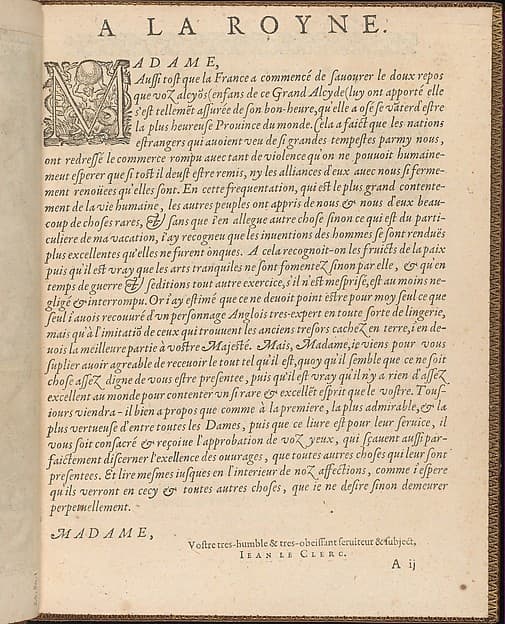 A LA ROYNE.
MADAME,
Aussi tost que la France a commencé de sauourer le doux repos
que voz alcyõs (enfans de ce Grand Alcyde (luy ont apporté elle
s'est tellemẽt assurée de son bon-heure, qu'elle a osé se vãter d'estre
la plus heureuse Prouince du monde. Cela a faict que les nations
estrangers qui auoient veu de si grandes tempestes parmy nous,
ont redressé le commerce rompu auec tant de violence qu'on ne pouuoit humaine-
meut esperer que si tost il deust estre remis, ny les alliances d'eux auec nous si ferme-
ment renoüees qu'elles sont. En cette frequentation, qui est le plus grand contente-
ment de la vie humaine, les autres peuples ont appris de nous & nous d'eux beau-
coup de choses rares, & sans que i'en allegue autre chose sinon ce qui est du parti-
culiere de ma vacation, i'ay recogneu que les inuentions des hommes se sont renduës
plus excellentes qu'elles ne furent onques. A cela recognoit-on les fruicts de la paix
puis qu'il est vray que les arts tranquiles ne sont fomentez sinon par elle, & qu'en
temps de guerre & seditions tout autre exercice, s'il n'est mesprisé, est au moins ne-
gligé & interrompu. Or i'ay estimé que ce ne deuoit point estre pour moy seul ce que
seul i'auois recouuré d'vn personnage Anglois tres-expert en toute sorte de lingerie,
mais qu'à l'imitatiõ de ceux qui trouuent les anciens tresors cachez en terre, i'en de-
uois la meilleure partie à vostre Majesté. Mais, Madame, ie viens pour vous
suplier auoir agreable de receuoir le tout tel qu'il est, quoy qu'il semble que ce ne soit
chose assez digne de vous estre presentee, puis qu'il est vray qu'il n'y a rien d'assez
excellent au monde pour contenter vn si rare & excellẽt esprit que le vostre. Tous-
iours viendra-il bien a propos que comme à la premiere, la plus admirable, & la
plus vertueuse d'entre toutes les Dames, puis que ce liure est pour leur seruice, il
vous soit consacré & reçoiue l'approbation de voz yeux, qui sçauent aussi par-
faictement discerner l'exellence des ouurages, que toutes autres choses qui leur sont
presentees. Et lire mesmes iusques en l'interieur de noz affections, comme i'espere
qu'ils verront en cecy & toutes autres choses, que ie ne desire sinon demeurer
perpetuellement.
MADAME,
Vostre tres-humble & tres-obeissant seruiteur & subject,
IEAN LE CLERC.
A ij